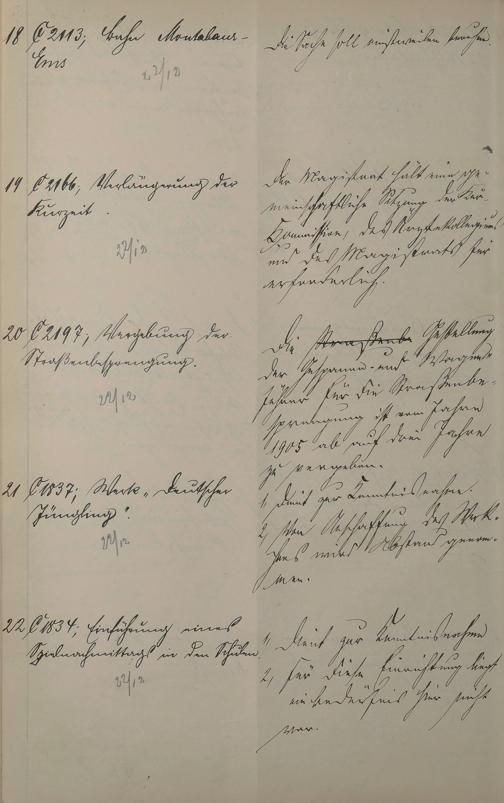 18 C 2113; Bahn Montabaur-
Ems
22/12
Die Sache soll einstweilen beruhen
19 C 2166; Verlängerung der
Kurzeit.
22/12
Der Magistrat hält eine ge-
meinschaftliche Sitzung der Kur-
Commission, des Ärztekollegiums
und des Magistrats für
erforderlich.
20 C 2197; Vergebung der
Straßenbesprengung.
22/12
Die Straßenbe Gestellung
der Gespanne und Wagen-
führer für die Straßenbe-
sprengung ist vom Jahre
1905 ab auf drei Jahre
zu vergeben.
21 C 1837; Werk "Deutscher
Jüngling".
22/12
1, Dient zur Kenntnisnahme.
2, Von Anschaffung des Werk-
chens wird Abstand genom-
men.
22, C 1834; Einführung eines
Spielnachmittags in den Schulen.
22/12
1, Dient zur Kenntnisnahme
2, Für diese Einrichtung liegt
ein Bedürfnis hier nicht
vor.